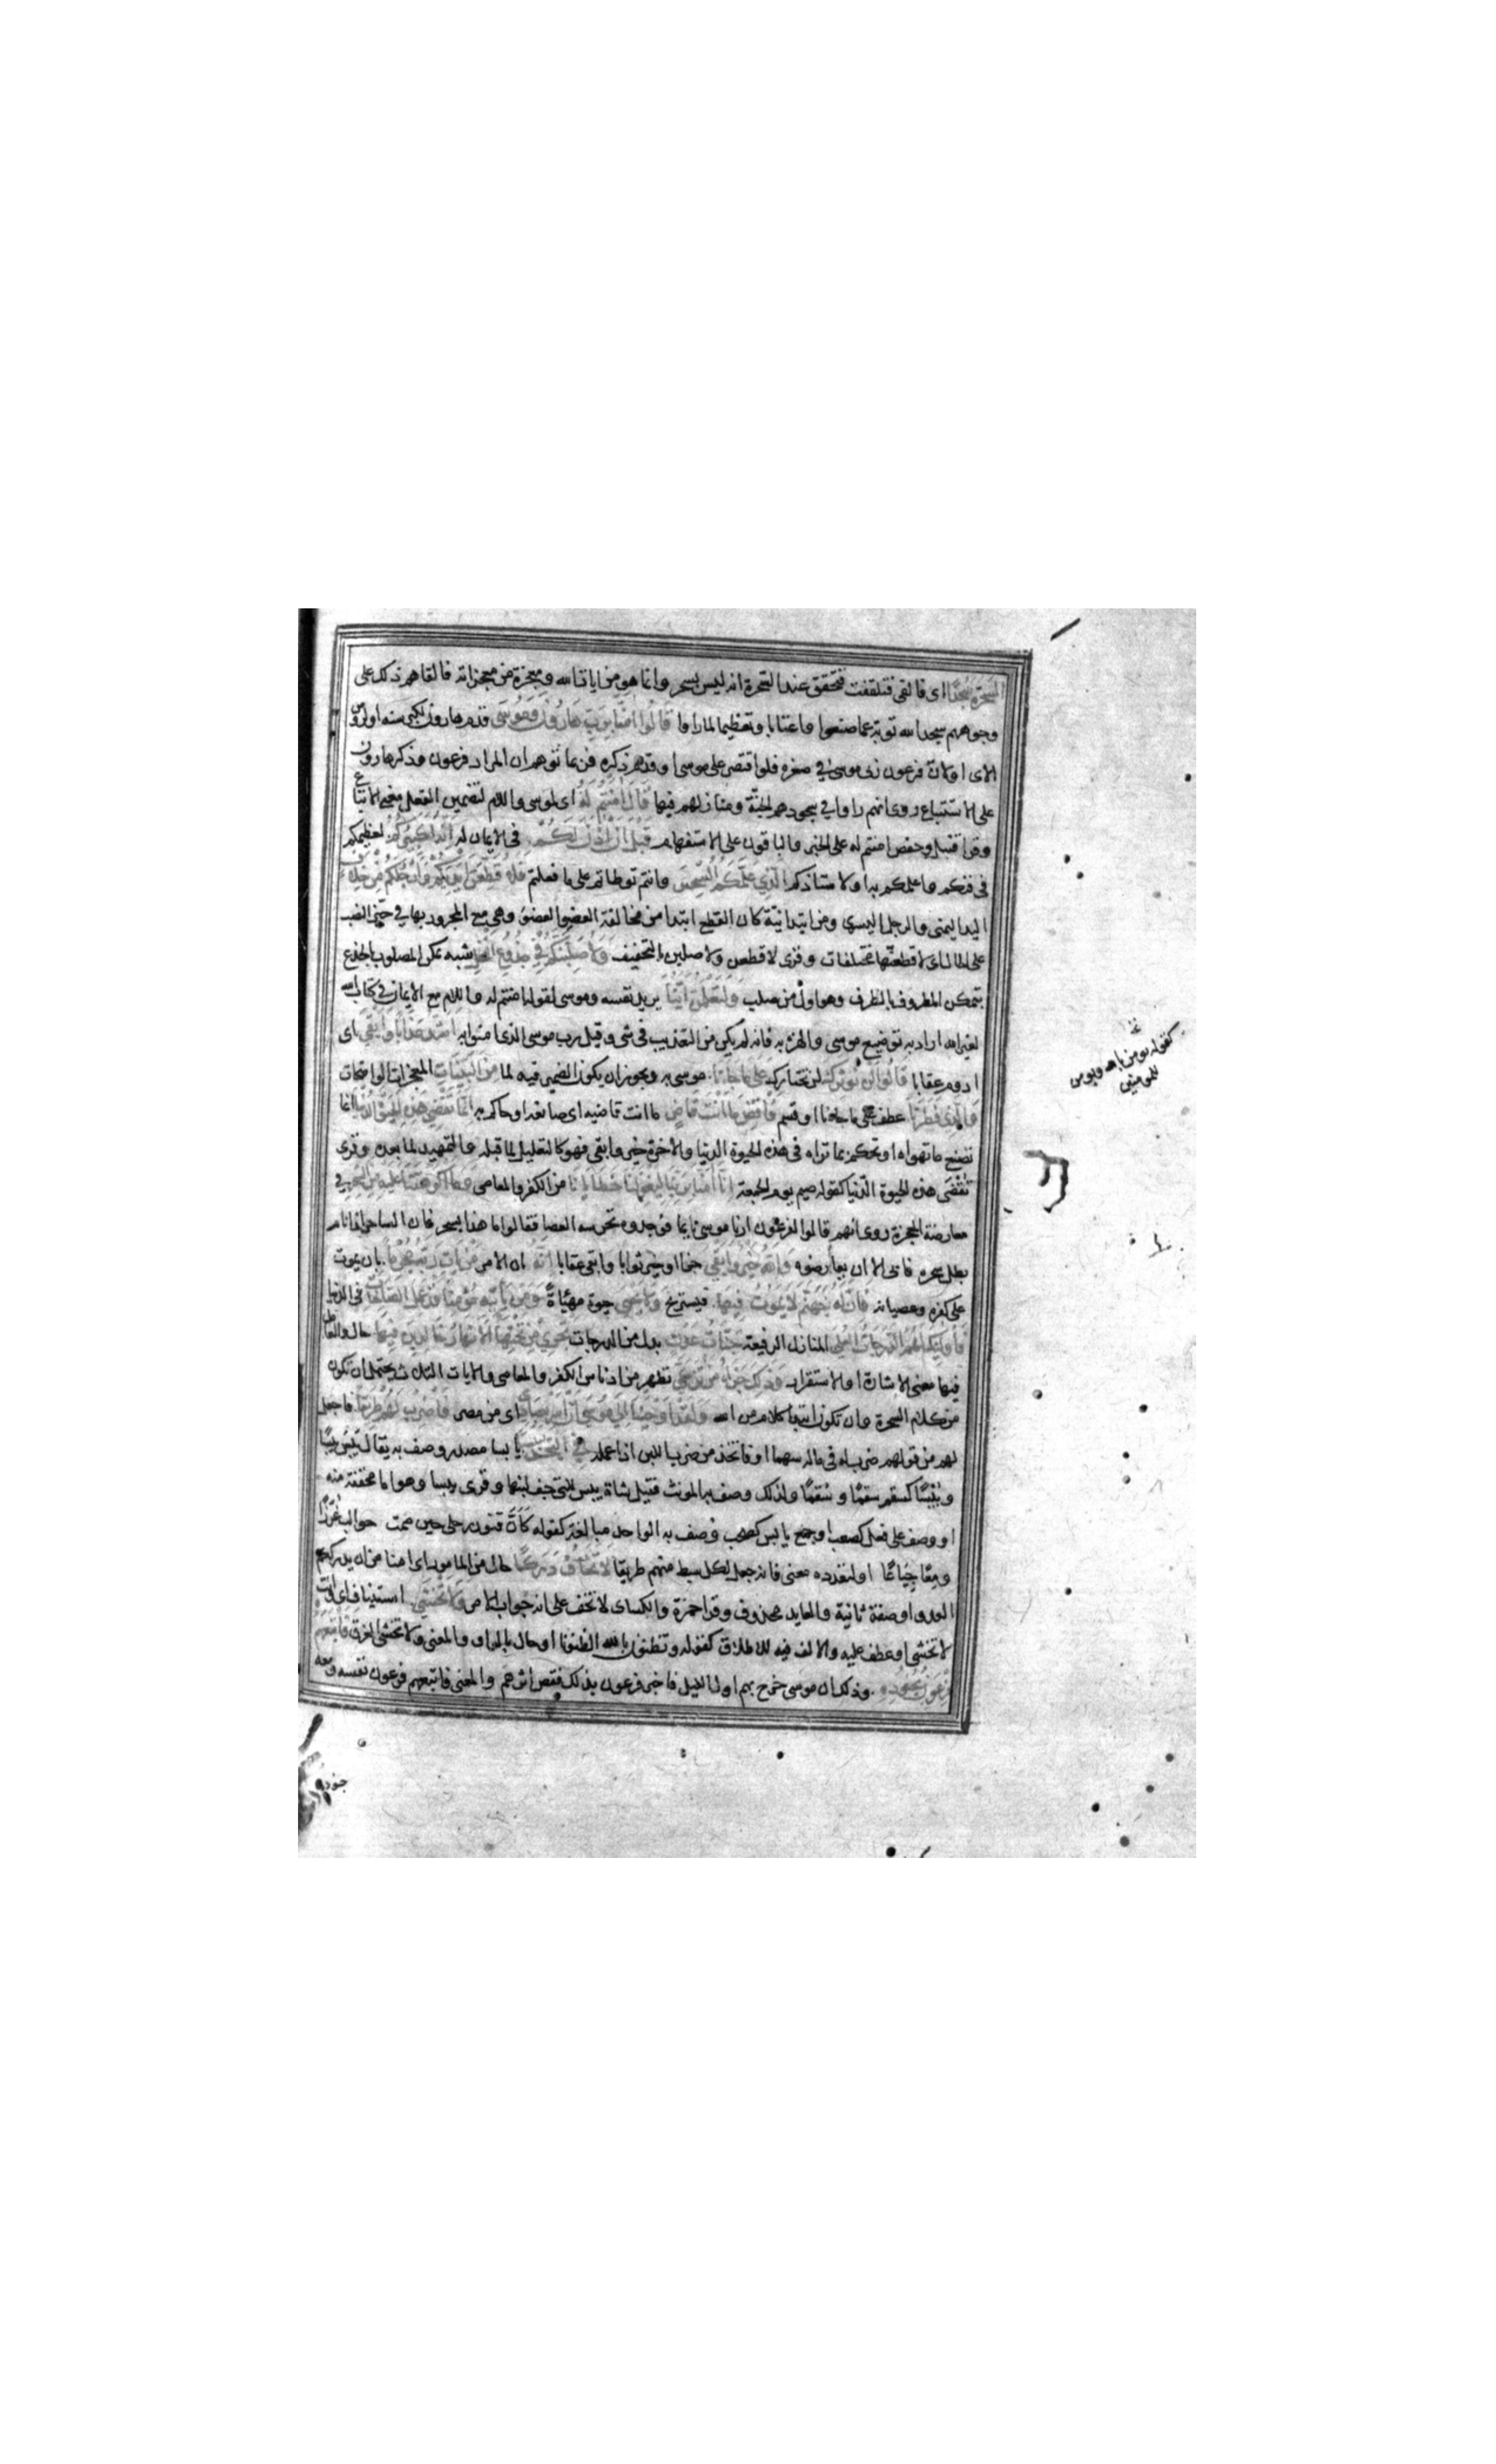 السحرة سجدا اى فالقى فتلقفت فتحقق عند السحرة انه ليس بسحر وانما هو من ايات الله ومعجزة من معجزاته فالقاهم ذلك على
وجوههم سجدا لله توبة عما صنعوا واعتابا وتعظيما لما راوا قَالُوا امَنَّا بِرَبِّ هَارُونَ وَمُوسَى قدم هارون لكبر سنه او لروى
الاى او لان فرعون ربى موسى في صغره فلو اقتصر على موسى او قدم ذكره فربما توهم ان المراد فرعون وذكر هارون
على الاستتباع روى انهم راوا في سجودهم الجنّة ومنازلهم فيها قَالَ امَنْتُمْ لَهُ اى لموسى واللام لتضمين الفعل معنى الاتباع
وقرا قنبل وحفص امنتم له على الخبر والباقون على الاستفهام قَبْلَ اَنْ اذَنَ لَكُمْ في الايمان له اِنَّهُ لَكَبِيرُكُمُ لعظيمكم
في فنكم واعلمكم به او لاستاذكم الَّذِي عَلَّمَكُمُ السِّحْرَ وانتم تواطاتم على ما فعلتم فَلَاُقَطِّعَنَّ اَيْدِيَكُمْ وَاَرْجُلَكُمْ مِنْ خِلَافٍ
اليد اليمنى والرجل اليسرى ومن ابتدائيّة كان القطع ابتدا من مخالفة العضو العضو وهى مع المجرور بها في حيّز النصب
على الحال اى لاقطعنّها مختلفات وقرى لاقطعن ولاصلبن بالتخفيف وَلَاُصَلِّبَنَّكُمْ فِي جُذُوعِ النَّخْلِ شبه تمكن المصلوب بالجذع
بتمكن المظروف بالظرف وهو اول من صلب وَلَتَعْلَمُنَّ اَيُّنَا يريد نفسه وموسى لقوله امنتم له واللام مع الايمان في كتاب الله
لغير الله اراد به توضيع موسى والهزء به فانه لم يكن من التعذيب في شى وقيل رب موسى الذى امنوا به اَشَدُّ عَذَابًا وَاَبْقَى اى
ادوم عقابا قَالُوا لَنْ نُوْثِرَكَ لن نختارك عَلَى مَا جَاءَنَا موسى به ويجوز ان يكون الضمير فيه لما مِنَ الْبَيِّنَاتِ المعجزات الواضحات
وَالَّذِي فَطَرَنَا عطف على ما جاءنا او قسم فَاقْضِ مَا اَنْتَ قَاضٍ ما انت قاضيه اى صانعه او حاكم به اِنَّمَا تَقْضِي هَذِهِ الْحَيٰوةَ الدُّنْيَا انما
تصنع ما تهواه او تحكم بما تراه في هذه الحيوة الدنيا والاخرة خير وابقى فهو كالتعليل لما قبله والتمهيد لما بعده وقرى
تُقْضَى هذه الحيوة الدّنيا كقوله صيم يوم الجمعة اِنَّا امَنَّا بِرَبِّنَا لِيَغْفِرَ لَنَا خَطَايَانَا من الكفر والمعاصى وَمَا اَكْرَهْتَنَا عَلَيْهِ مِنَ السِّحْرِ في
معارضة المعجزة روى انهم قالوا لفرعون ارنا موسى نايما فوجدوه تحرسه العصا فقالوا ما هذا بسحر فان الساحر اذا نام
بطل سحره فابى الا ان يعارضوه وَاللهُ خَيْرٌ وَاَبْقَى جزاء او خير ثوابا وابقى عقابا اِنَّهُ ان الامر مَنْ يَاْتِ رَبَّهُ مُجْرِمًا بان يموت
على كفره وعصيانه فَاِنَّ لَهُ جَهَنَّمَ لَا يَمُوتُ فِيهَا فيستريح وَلَا يَحْيَى حيوة مهنّاةً وَمَنْ يَاْتِهِ مُؤْمِنًا قَدْ عَمِلَ الصَّالِحَاتِ في الدنيا
فَاُولَئِكَ لَهُمُ الدَّرَجَاتُ الْعُلَى المنازل الرفيعة جَنَّاتُ عَدْنٍ بدل من الدرجات تَجْرِي مِنْ تَحْتِهَا الْاَنْهَارُ خَالِدِينَ فِيهَا حال والعامل
فيها معنى الاشارة او الاستقرار وَذَلِكَ جَزَاءُ مَنْ تَزَكَّى تطهر من ادناس الكفر والمعاصى والايات الثلاث يحتمل ان تكون
من كلام السحرة وان تكون ابتدا كلام من الله وَلَقَدْ اَوْحَيْنَا اِلَى مُوسَى اَنْ اَسْرِ بِعِبَادِي اى من مصر فَاضْرِبْ لَهُمْ طَرِيقًا فاجعل
لهم من قولهم ضرب له في ماله سهما او فاتخذ من ضرب اللبن اذا عمله فِي الْبَحْرِ يَبَسًا يابسا مصدر وصف به يقال يَبِسَ يَبَسًا
ويُبْسًا كسقم سقمًا وسُقمًا ولذلك وصف به المونث فقيل شاة يبس للتى جف لبنها وقرى يبسا وهو اما مخففة منه
او وصف على فعل كصعب او جمع يابس كصحب وصف به الواحد مبالغة كقوله كَاَنَّ قتود رحلى حين ضمت حوالب غُرّزًا
ومِعًا جِيَاعًا او لتعدده معنى فانه جعل لكل سبط منهم طريقا لَا تَخَافُ دَرَكًا حال من المامور اى امنا من ان يدرككم
العدو او صفة ثانية والعايد محذوف وقرا حمزة والكساى لا تخف على انه جواب الامر وَلَا تَخْشَى استيناف اى وانت
لا تخشى او عطف عليه والالف فيه للاطلاق كقوله وتظنون بالله الظنونا او حال بالواو والمعنى ولا تخشى الغرق فَاَتْبَعَهُمْ
فِرْعَوْنُ بِجُنُودِهِ وذلك ان موسى خرج بهم اول الليل فاخبر فرعون بذلك فقص اثرهم والمعنى فاتبعهم فرعون نفسه ومعه
كقوله يومن بالله ويومن
للمومنين
جنوده